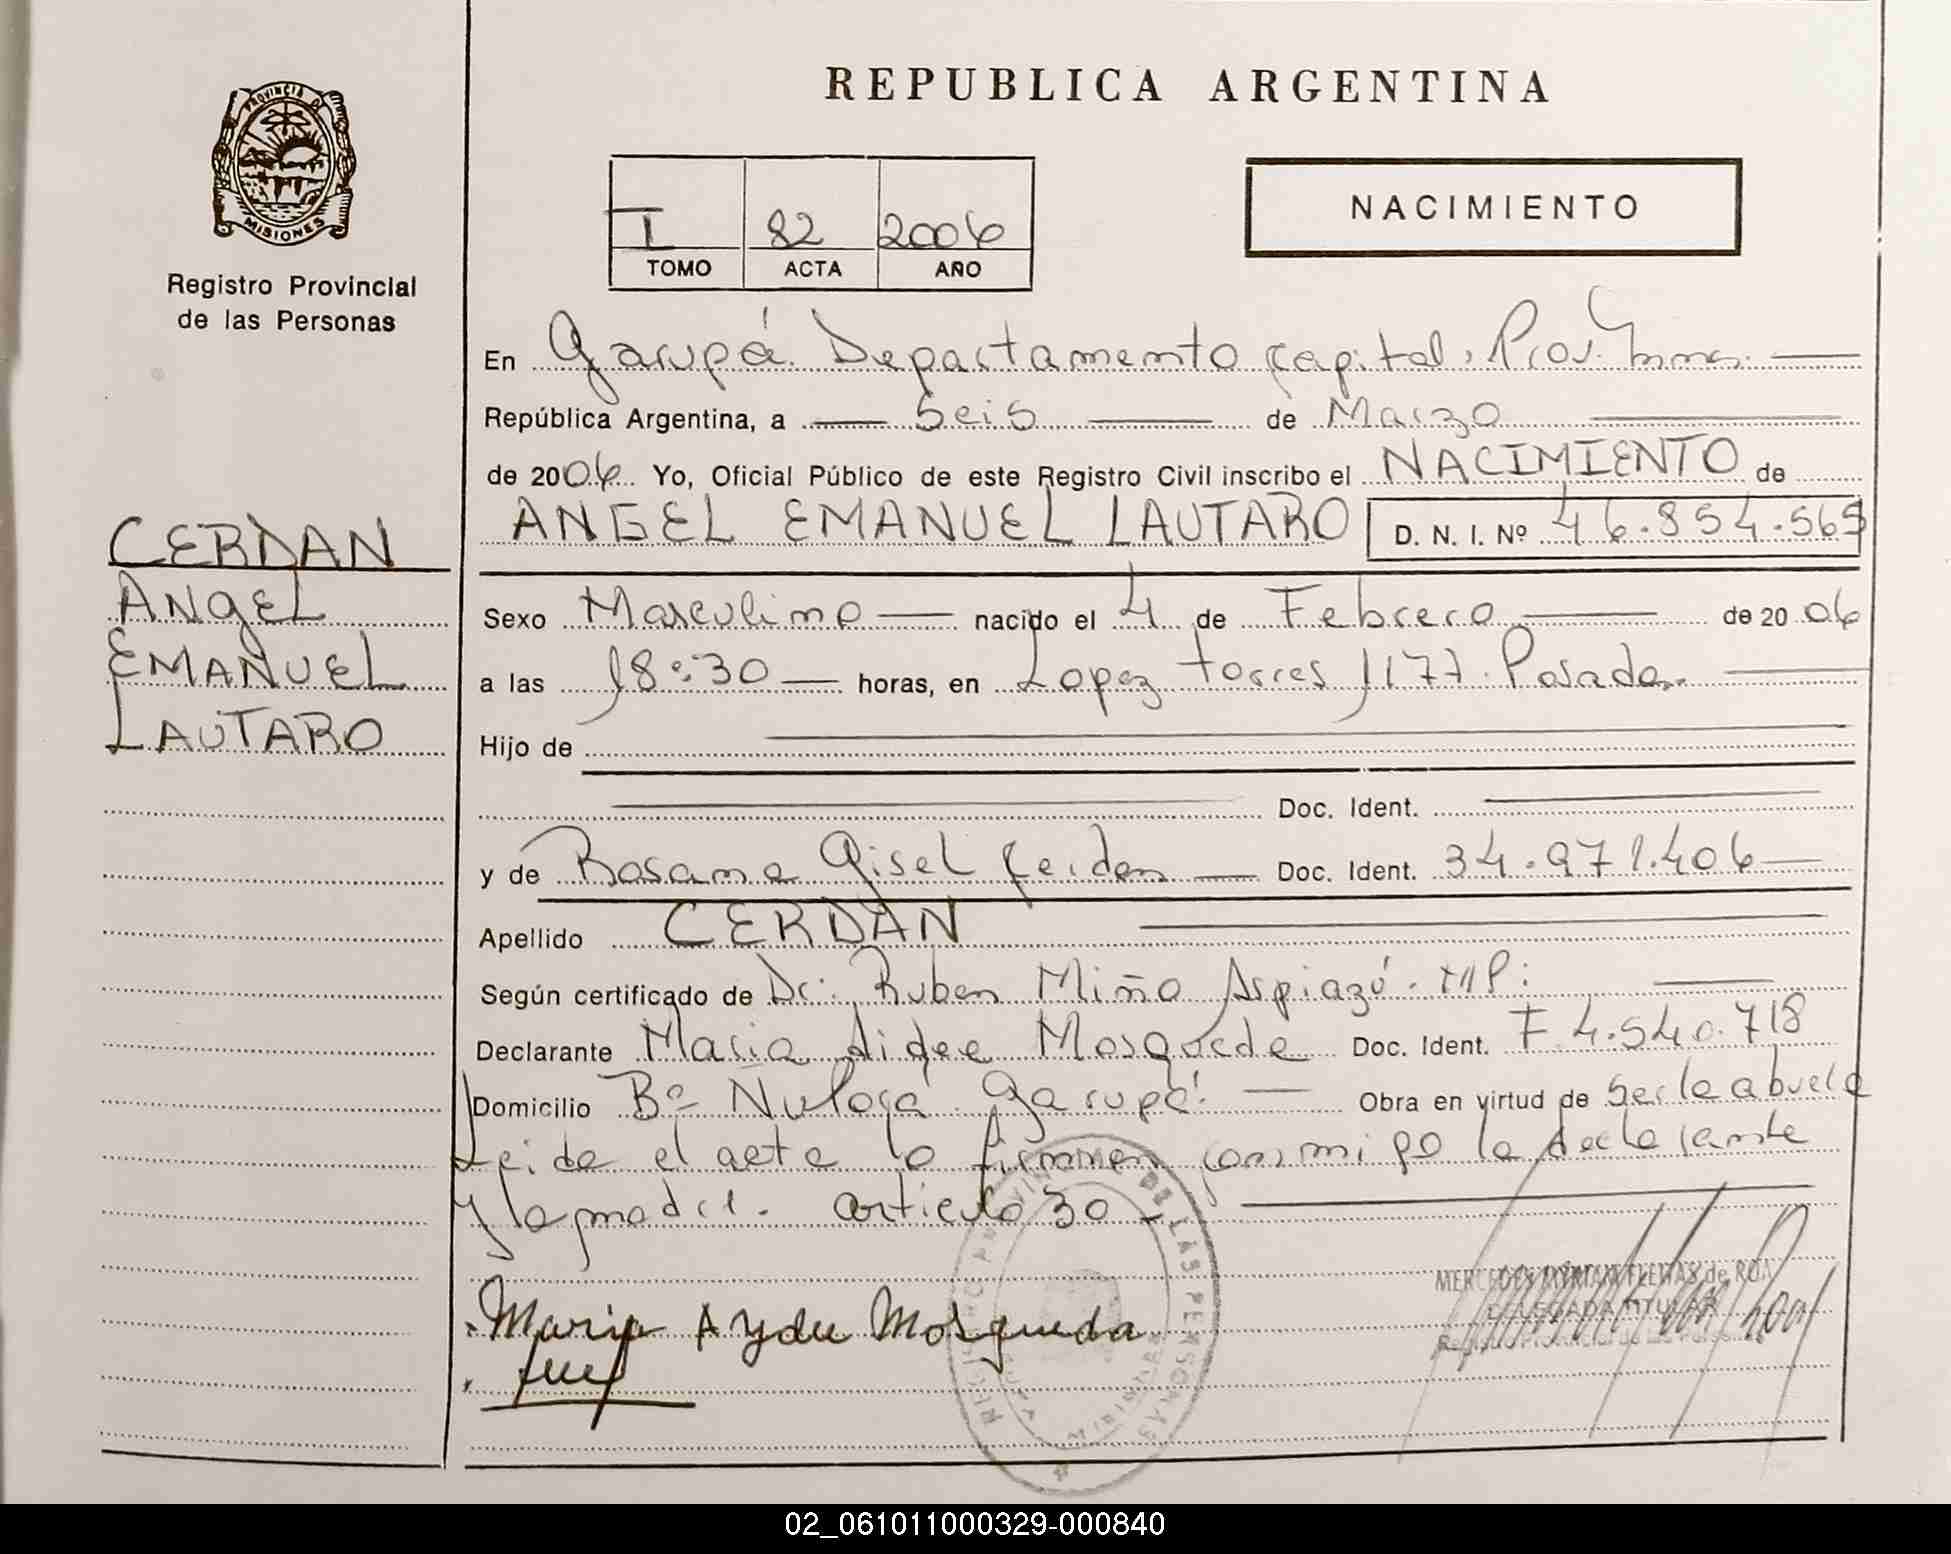 REPUBLICA ARGENTINA
PROVINCIA D
MISIONES
Registro Provincial
de las Personas
I 82 2006
TOMO ACTA AÑO
NACIMIENTO
En Garupá. Departamento Capital, Prov. Mnes.
República Argentina, a Seis de Marzo
de 2006. Yo, Oficial Público de este Registro Civil inscribo el NACIMIENTO de
ANGEL EMANUEL LAUTARO D. N. I. Nº 46.854.565
CERDAN
ANgEL
EMANUEL
LAUTARO
Sexo Masculino nacido el 4 de Febrero de 2006
a las 18:30 horas, en Lopez Torres 1177. Posadas.
Hijo de
Doc. Ident.
y de Rosana Gisel Doc. Ident. 34.971.406
Apellido CERDAN
Según certificado de Dr. Ruben Miño Aspiazú. MP:
Declarante Maria Aidee Mosqueda Doc. Ident. F 4.540.718
Domicilio Bº Garupá. Obra en virtud de Ser la abuela
Leida el acta la firman conmigo la declarante
y la madre. articulo 30
MERCEDES MYRIAM FLEITAS de ROA
DELEGADA TITULAR
Maria Aydee Mosqueda
DE LAS PERSONAS
02_061011000329-000840